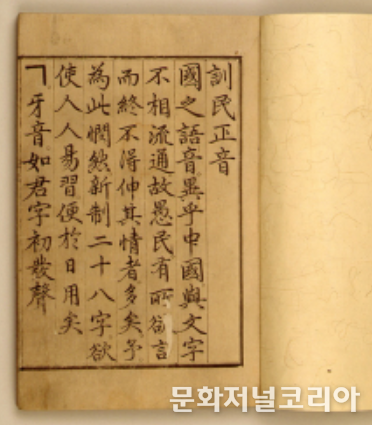 訓民正音
國之語音異乎中國與文字
不相流通故愚民有所欲言
而終不得伸其情者多矣予
為此憫然新制二十八字欲
使人人易習便於日用矣
ㄱ牙音如君字初發聲
문화저널코리아